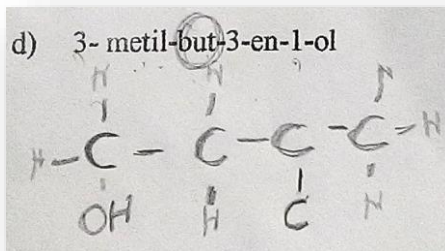 d) 3- metil-but-3-en-1-ol
H H H
H - C - C - C - C - H
OH H C H